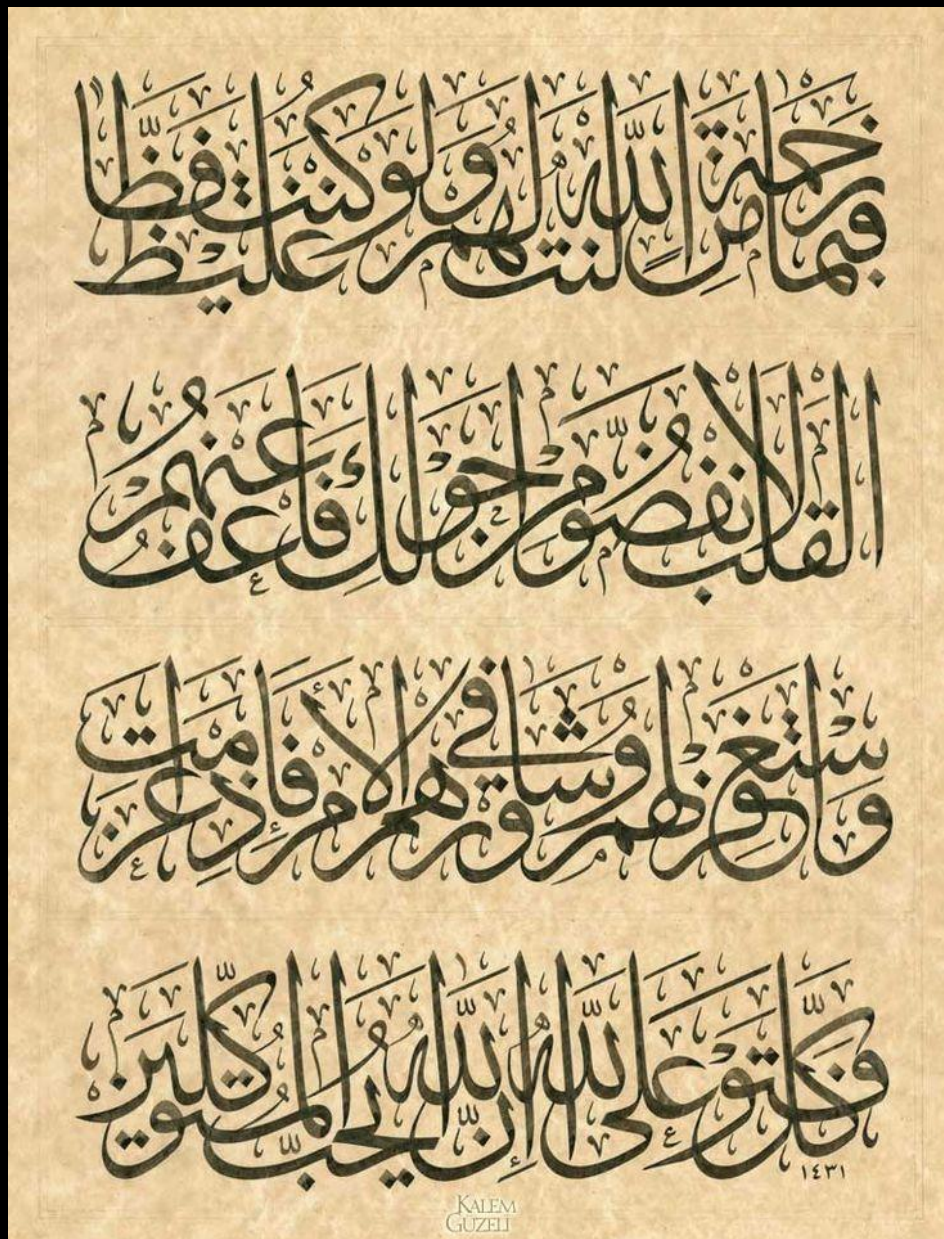 فَبِمَا رَحْمَةٍ مِنَ اللّٰهِ لِنْتَ لَهُمْ وَلَوْ كُنْتَ فَظًّا غَلِيظَ
الْقَلْبِ لَانْفَضُّوا مِنْ حَوْلِكَ فَاعْفُ عَنْهُمْ
وَاسْتَغْفِرْ لَهُمْ وَشَاوِرْهُمْ فِي الْأَمْرِ فَإِذَا عَزَمْتَ
فَتَوَكَّلْ عَلَى اللّٰهِ إِنَّ اللّٰهَ يُحِبُّ الْمُتَوَكِّلِينَ
١٤٣١
KALEM
GUZELI